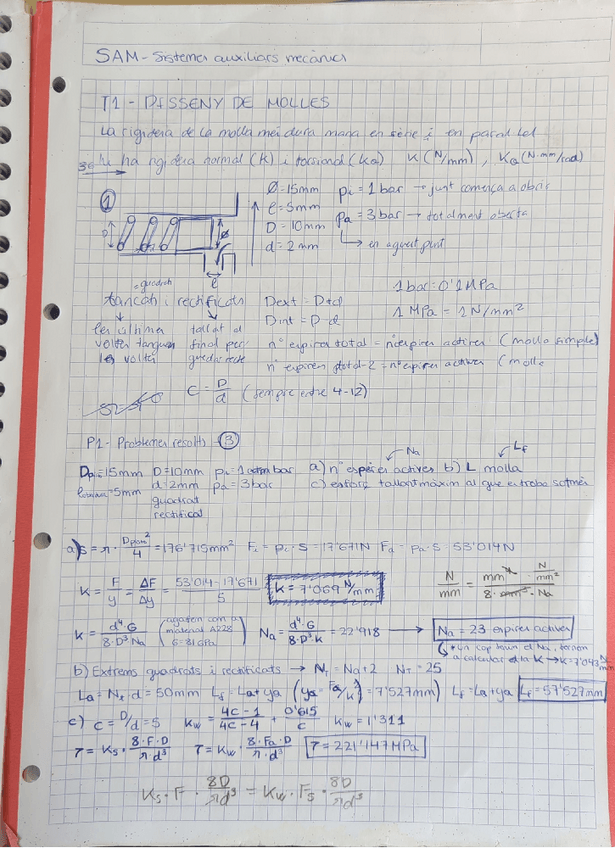 SAM - Sistemes auxiliars mecànics
T1 - DISSENY DE MOLLES
La rigidesa de la molla mai dura mana en sèrie i en paral·lel
hi ha rigidesa normal (K) i torsional (Ka) K(N/mm), Ka(N·mm/rad)
①
Ø=15mm
ℓ=5mm
D=10mm
d=2mm
pi=1bar → just comença a obrir
pa=3bar → totalment oberta
↳ en aquest punt
D
Ø
ℓ
=quadrats
tancats i rectificats
les última
voltes tanquen
les voltes
tallat al
final per
quedar recte
Dext = D+d
Dint = D-d
1bar=0'1MPa
1MPa = 1N/mm²
n° espires total = n° espires actives (molla simple)
n° espires total-2 = n° espires actives (molla
C = D/d (sempre entre 4-12)
P1 - Problemes resolts ③
D=10mm
d=2mm
quadrat
rectificat
pa=3bar
a) n° espires actives → Na
b) L molla → Lf
c) esforç tallant màxim al que es troba sotmès
a) S = π·
/4 = 176'715mm² Fi = pi·S = 17'671N Fa = pa·S = 53'014N
K = F/y = ΔF/Δy = (53'014-17'671)/5 K=7'069 N/mm
N/mm = (mm⁴ · N/mm²)/(8·mm³·Na)
K = d⁴·G/(8·D³·Na) (agafem com a material A228 G=81GPa) Na = d⁴·G/(8·D³·K) = 22'918 → Na = 23 espires actives
b) Extrems quadrats i rectificats → Nt = Na+2 NT = 25
La = Nt·d = 50mm Lf = La+ya (ya = Fa/K = 7'527mm) Lf = La+ya Lf=57'527mm
c) C = D/d = 5 Kw = (4C-1)/(4C-4) + 0'615/C Kw = 1'311
τ = Ks·8·F·D/(π·d³) τ = Kw·8·Fa·D/(π·d³) τ = 221'147MPa
Ks·F·8D/(πd³) = Kw·Fs·8D/(πd³)